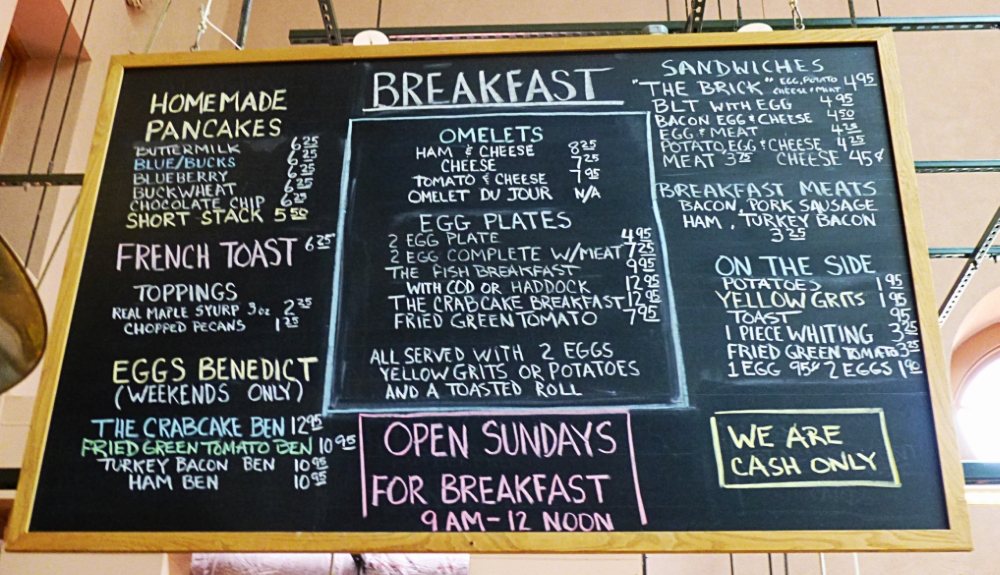 HOMEMADE
PANCAKES
BUTTERMILK 6 25
BLUE/BUCKS 6 25
BLUEBERRY 6 25
BUCKWHEAT 6 25
CHOCOLATE CHIP 6 25
SHORT STACK 5 50
FRENCH TOAST 6 25
TOPPINGS
REAL MAPLE SYURP 3oz 2 25
CHOPPED PECANS 1 25
EGGS BENEDICT
(WEEKENDS ONLY)
THE CRABCAKE BEN 12 95
FRIED GREEN TOMATO BEN 10 95
TURKEY BACON BEN 10 95
HAM BEN 10 95
BREAKFAST
OMELETS
HAM & CHEESE 8 25
CHEESE 7 25
TOMATO & CHEESE 7 95
OMELET DU JOUR N/A
EGG PLATES
2 EGG PLATE 4 95
2 EGG COMPLETE W/MEAT 7 25
THE FISH BREAKFAST 9 95
WITH COD OR HADDOCK 12 95
THE CRABCAKE BREAKFAST 12 95
FRIED GREEN TOMATO 7 95
ALL SERVED WITH 2 EGGS
YELLOW GRITS OR POTATOES
AND A TOASTED ROLL
OPEN SUNDAYS
FOR BREAKFAST
9 AM - 12 NOON
SANDWICHES
"THE BRICK" EGG, POTATO CHEESE & MEAT 4 95
BLT WITH EGG 4 95
BACON EGG & CHEESE 4 50
EGG & MEAT 4 25
POTATO, EGG & CHEESE 4 25
MEAT 3 75 CHEESE 45¢
BREAKFAST MEATS
BACON, PORK SAUSAGE
HAM, TURKEY BACON
3 25
ON THE SIDE
POTATOES 1 95
YELLOW GRITS 1 95
TOAST 95
1 PIECE WHITING 3 25
FRIED GREEN TOMATO 3 25
1 EGG 95¢ 2 EGGS 1 90
WE ARE
CASH ONLY